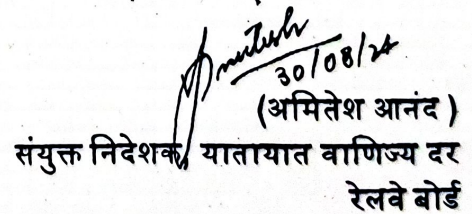 Amitesh
30/08/24
(अमितेश आनंद )
संयुक्त निदेशक, यातायात वाणिज्य दर
रेलवे बोर्ड